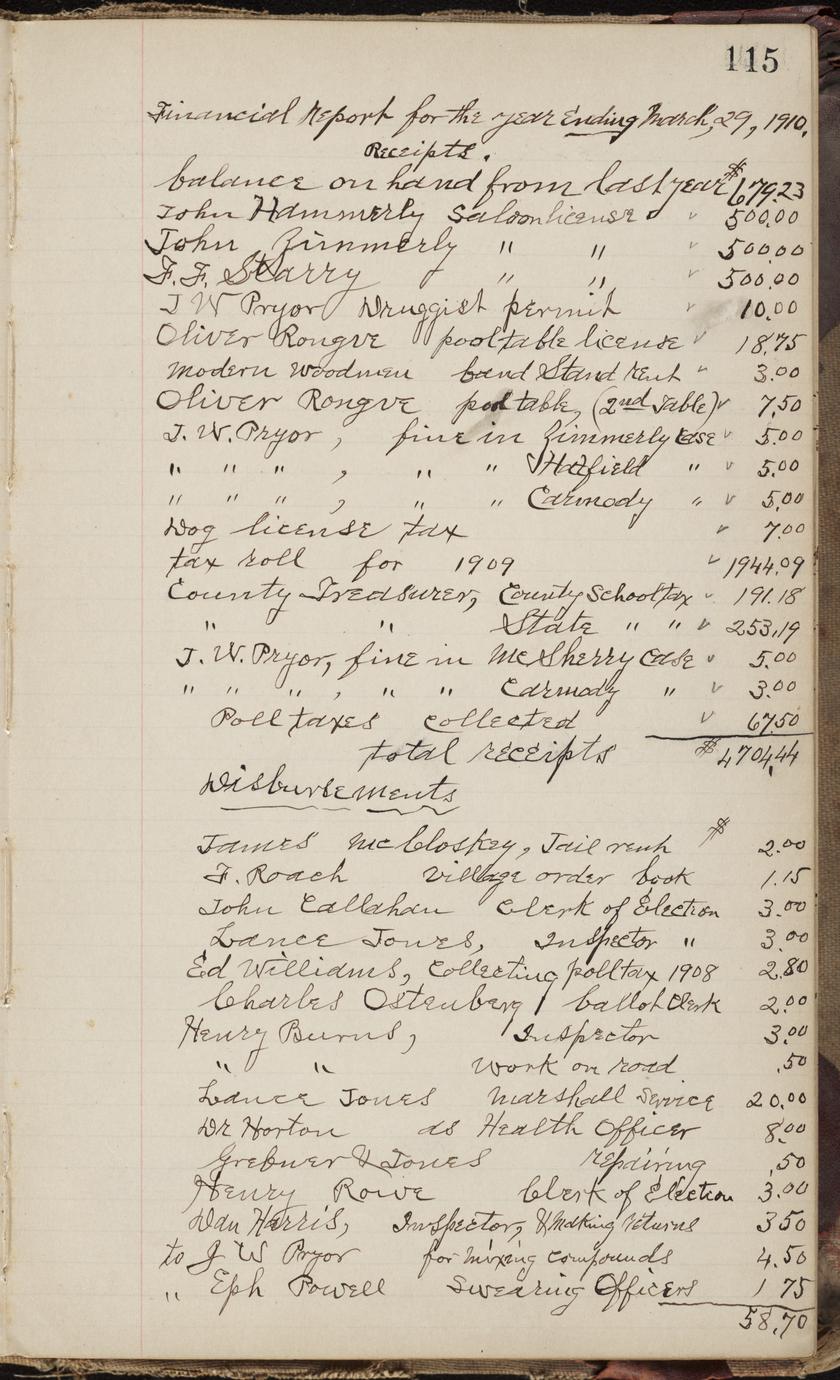 115
Financial Report for the year Ending March, 29, 1910.
Receipts.
balance on hand from last year $679.23
John Hammerly Saloon license " 500.00
John Zimmerly " " " 500.00
F. F. Starry " " " 500.00
J W Pryor Druggist permit 10.00
Oliver Rongve pool table license " 18.75
Modern Woodmen band Stand rent " 3.00
Oliver Rongve pool table, (2nd Table) " 7.50
J. W. Pryor, fine in Zimmerly Case " 5.00
" " " , " " Hatfield " " 5.00
" " " , " " Carmody " " 5.00
Dog license tax " 7.00
tax roll for 1909 " 1944.09
County Treasurer, County School tax " 191.18
" " State " " " 253.19
J. W. Pryor, fine in McSherry Case " 5.00
" " " , " " Carmody " " 3.00
Poll taxes collected " 67.50
total receipts $4704.44
Disbursements
James McCloskey, Jail rent $ 2.00
F. Roach Village order book 1.15
John Callahan Clerk of Election 3.00
Lance Jones, Inspector " 3.00
Ed Williams, Collecting poll tax 1908 2.80
Charles Ostenberg ballot Clerk 2.00
Henry Burns, Inspector 3.00
" " Work on road .50
Lance Jones Marshall Service 20.00
Dr Horton as Health Officer 8.00
Grebner & Jones repairing .50
Henry Rowe Clerk of Election 3.00
Dan Harris, Inspector, & Making returns 3 50
to J W Pryor for mixing compounds 4.50
" Eph Powell Swearing Officers 1 75
58.70